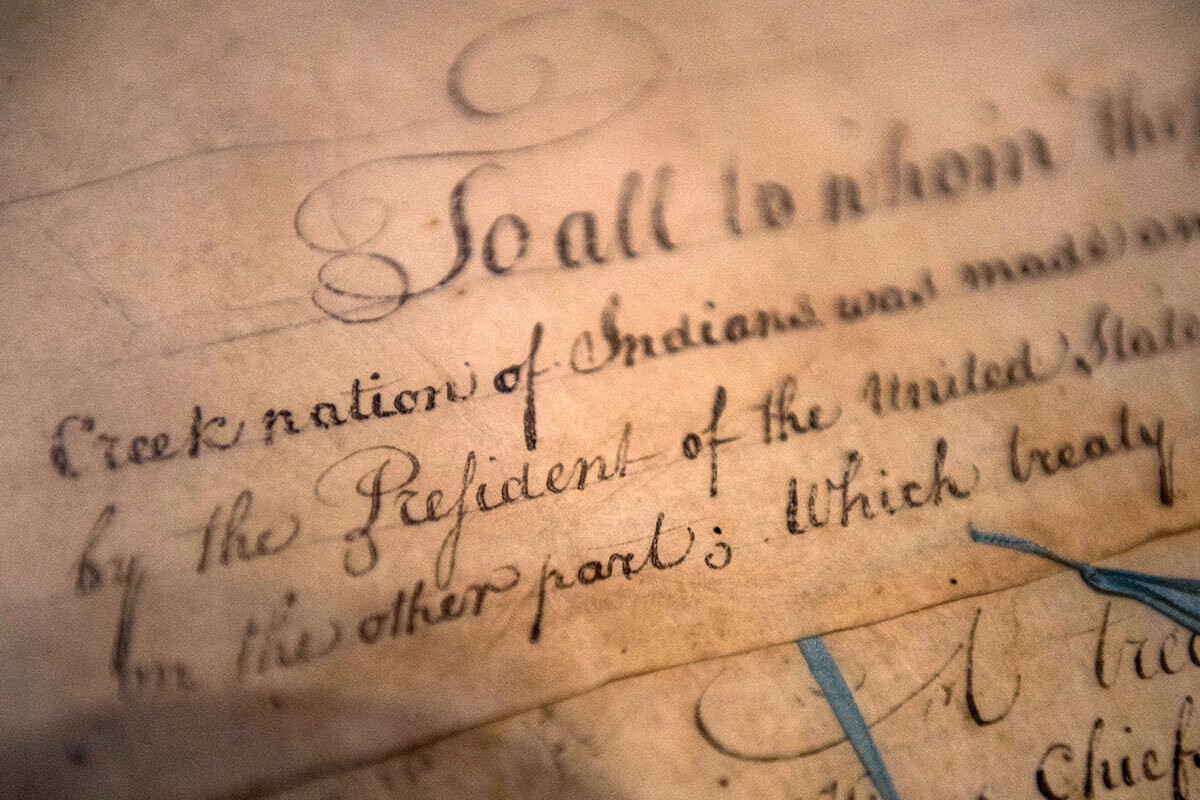 To all to whom the
Creek nation of Indians was made on
by the Preſident of the United State
on the other part; Which treaty
A tree
Chief